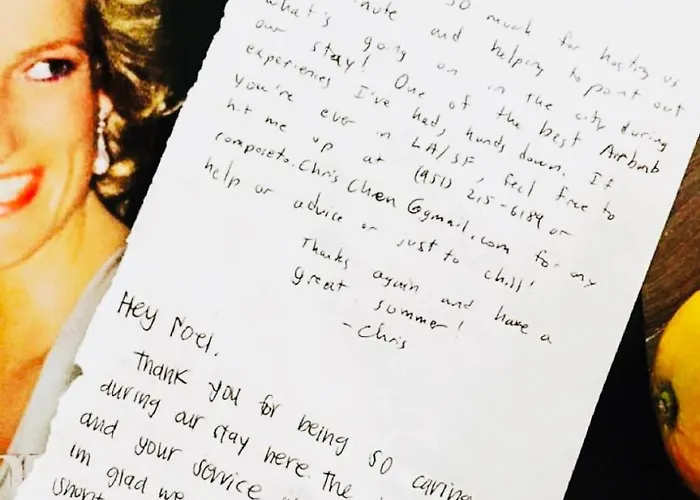 so much for hosting us
note and helping to point out
what's going on in the city during
our stay! One of the best Airbnb
experiences I've had, hands down. If
you're ever in LA/SF, feel free to
hit me up at (951) 215-6189 or
composeto.Chris Chen @gmail.com for any
help or advice or just to chill!
Thanks again and have a
great summer!
-Chris
Hey Noel,
Thank you for being so caring
during our stay here. The
and your service
im glad we
short